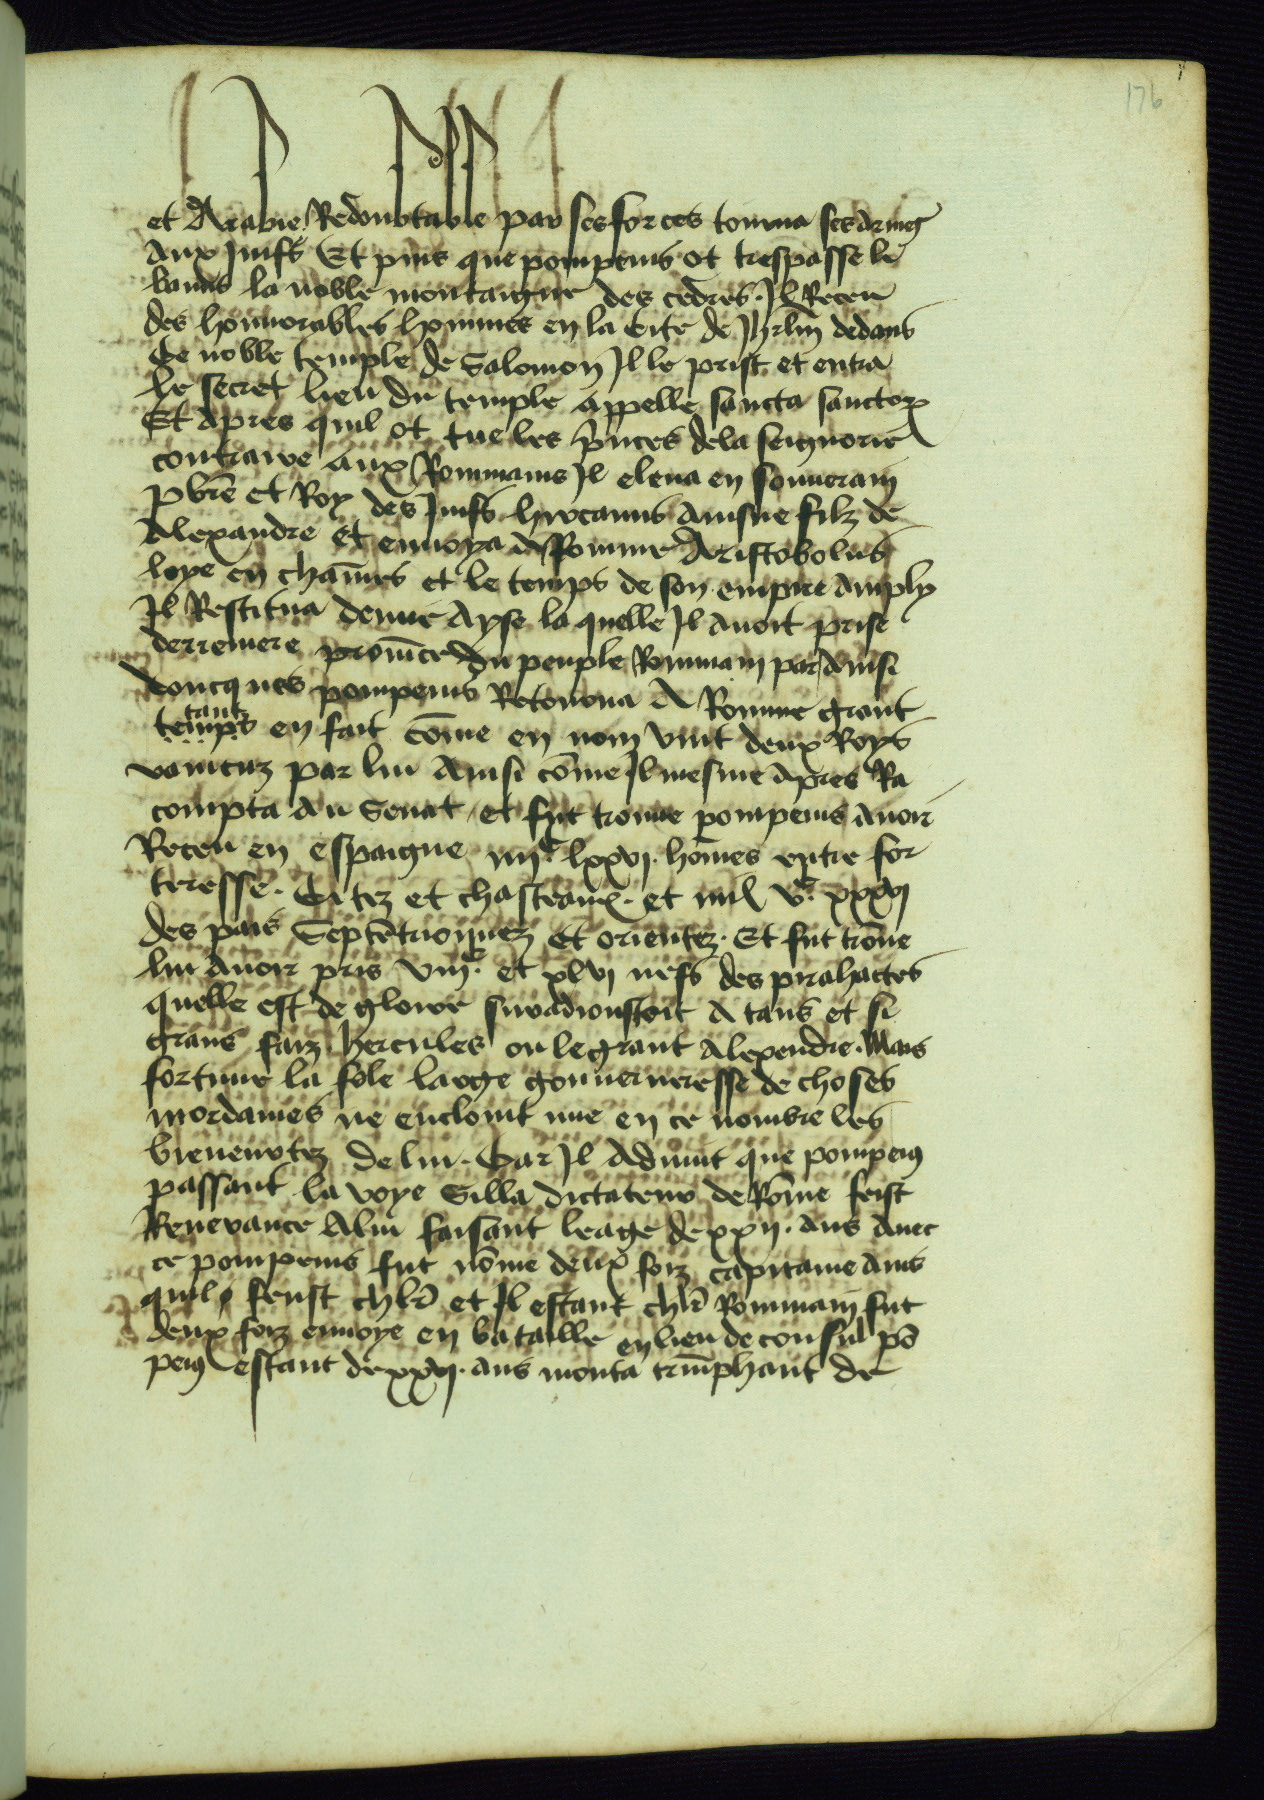 176
et Arabie Redoubtable par ses forces tourna ses armes
aux Juifs Et puis que pompeius ot trespasse le
banus la noble montaigne des cedres. Il Receu
des honnorables hommes en la Cite de Jhrlm dedans
Ce noble temple de Salomon Il le prist et entra
le secret lieu du temple appelle sancta sanctor
Et apres quil ot tue les princes de la seignorie
contraire aux Rommains Il esleua en souuerain
pbre et Roy des Juifs hircanus ainsne filz de
Alexandre et enuoya a Romme Aristobolus
loye en chaines et le temps de son empire amply
Il Restitua deuue Ayse la quelle Il auoit prise
derreniere prouince du peuple Rommain par Ainsi
doncques pompeius Retourna A Romme grant
tant
temps en fait come en nom vint deux Roys
vaincuz par lui Ainsi come Il mesme apres Ra
compta Au Senat et fut trouue pompeius auoir
Receu en espaigne iiii.c lxxvi. homes entre for
teresse. Citez et chasteaux. et mil v.c xxxvi
des pais Septetrionnez et orientez. Et fut troue
lui auoir pris viii.c et xlvi nefs des pirahactes
quelle est de gloire suradioustoit A tans et si
grans faiz hercules ou le grant Alexendre. Mais
fortune la fole large gouuerneresse de choses
mordaines ne enclouit mie en ce nombre les
bieneurtez de lui. Car Il aduint que pompeius
passant la voye Silla dictateur de Rome feist
Reuerance A lui faisant leage de xxii. ans Auec
ce pompeius fut nome deux foiz capitaine Ains
quil feust chlr et Il estant chlr Rommain fut
deux foiz enuoye en bataille en lieu de consul po
peius estant de xxvi. ans monta triuphant de